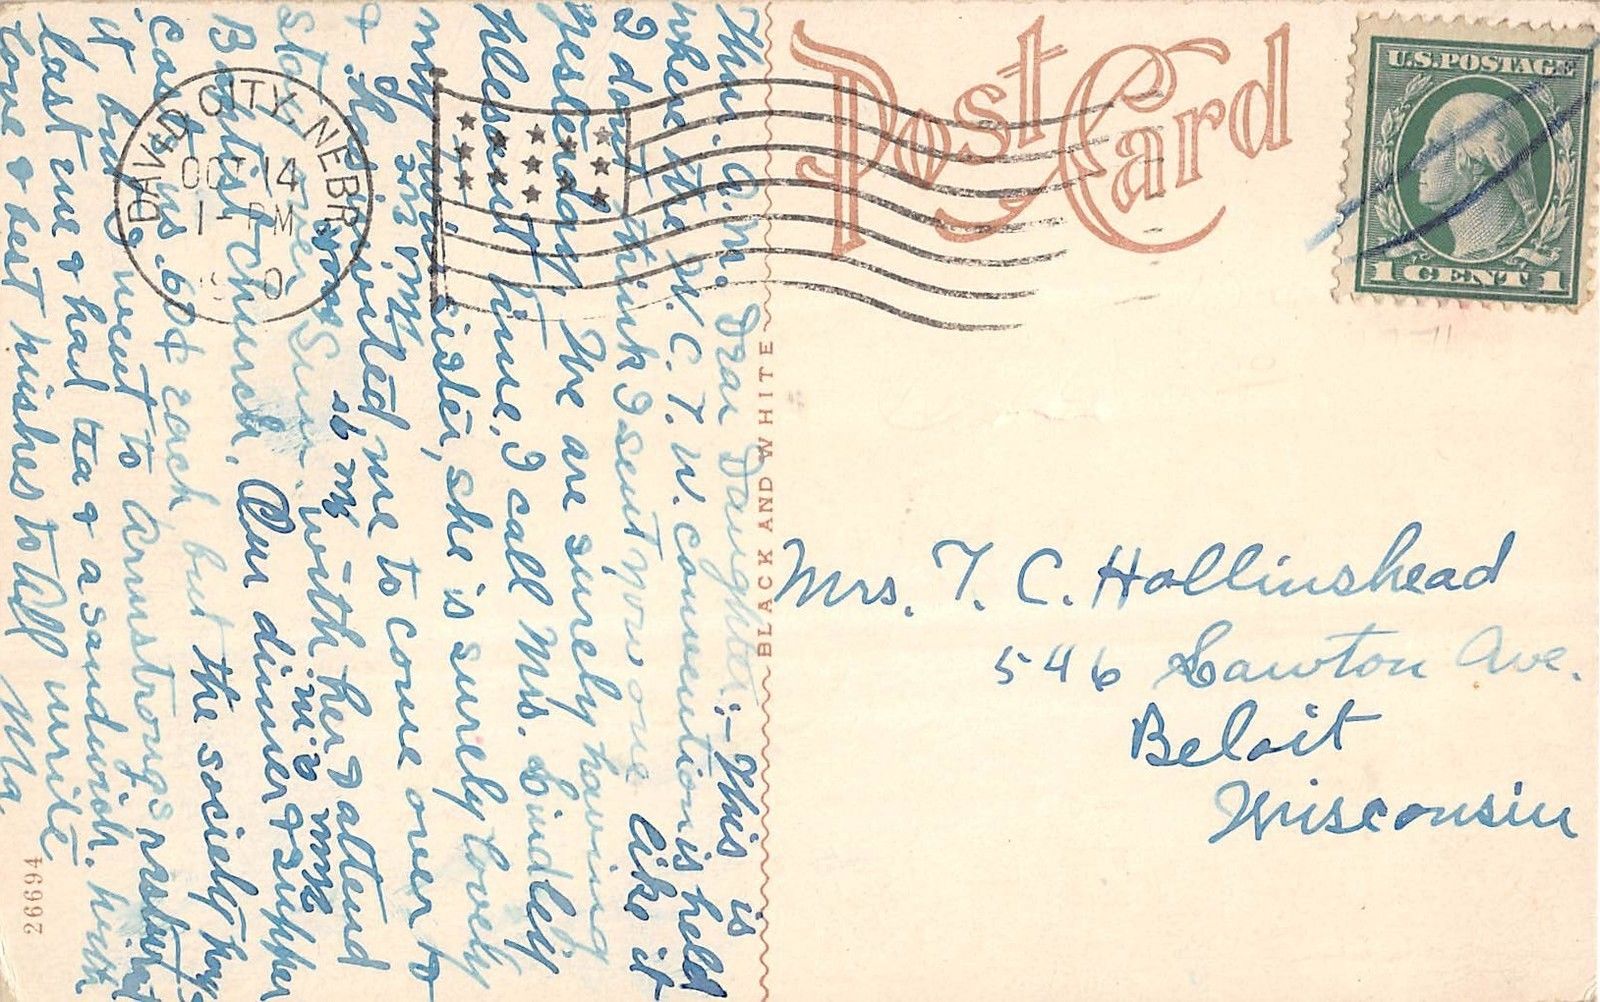 Post Card
U.S. POSTAGE
1 CENT 1
DAVID CITY, NEBR.
OCT 14
1 - PM
BLACK AND WHITE
26694
Mrs. T. C. Hollinshead
546 Lawton Ave.
Beloit
Wisconsin
Thur. A.M. Dear Daughter:- This is
where the W. C. T. U. convention is held
I don't think I sent you one like it
yesterday. We are surely having
plesant time. I call Mrs. Lindley
my twin sister, she is surely lovely
& has invited me to come over to
stay over Sun. with her & attend
Baptist Church. Our dinner & supper
cost us .60¢ each but the society pays
it but we went to Armstrongs
last eve & had tea & a sandwich. With
Love & best wishes to all write
Ma.